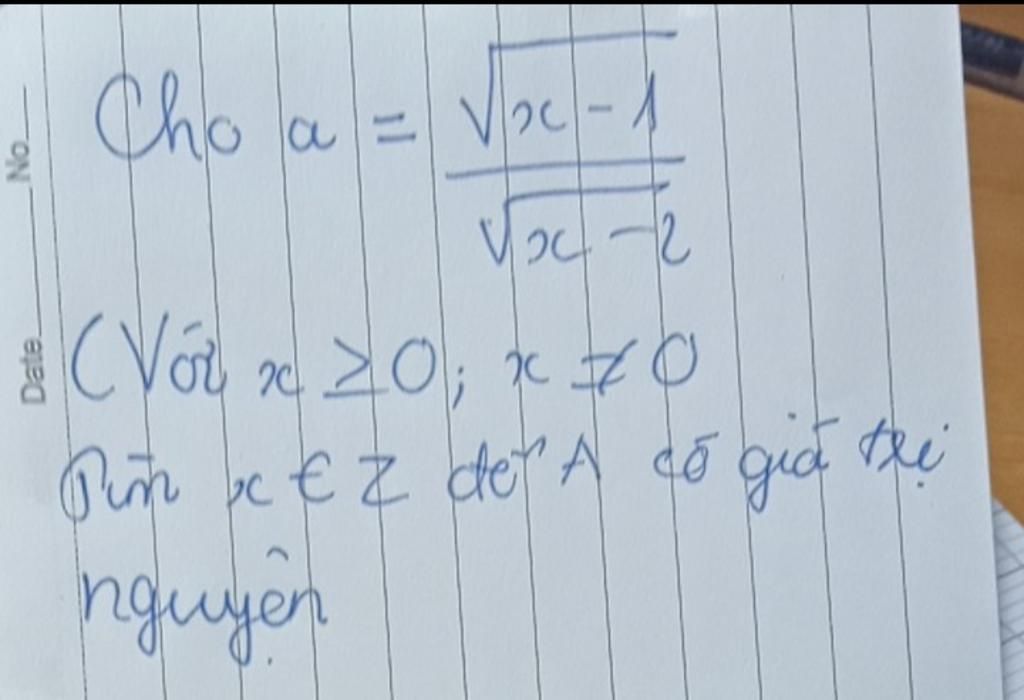 No.
Date
Cho a = \frac{\sqrt{x-1}}{\sqrt{x-2}}
(Với x ≥ 0; x ≠ 0
Tìm x ∈ Z để A có giá trị
nguyên